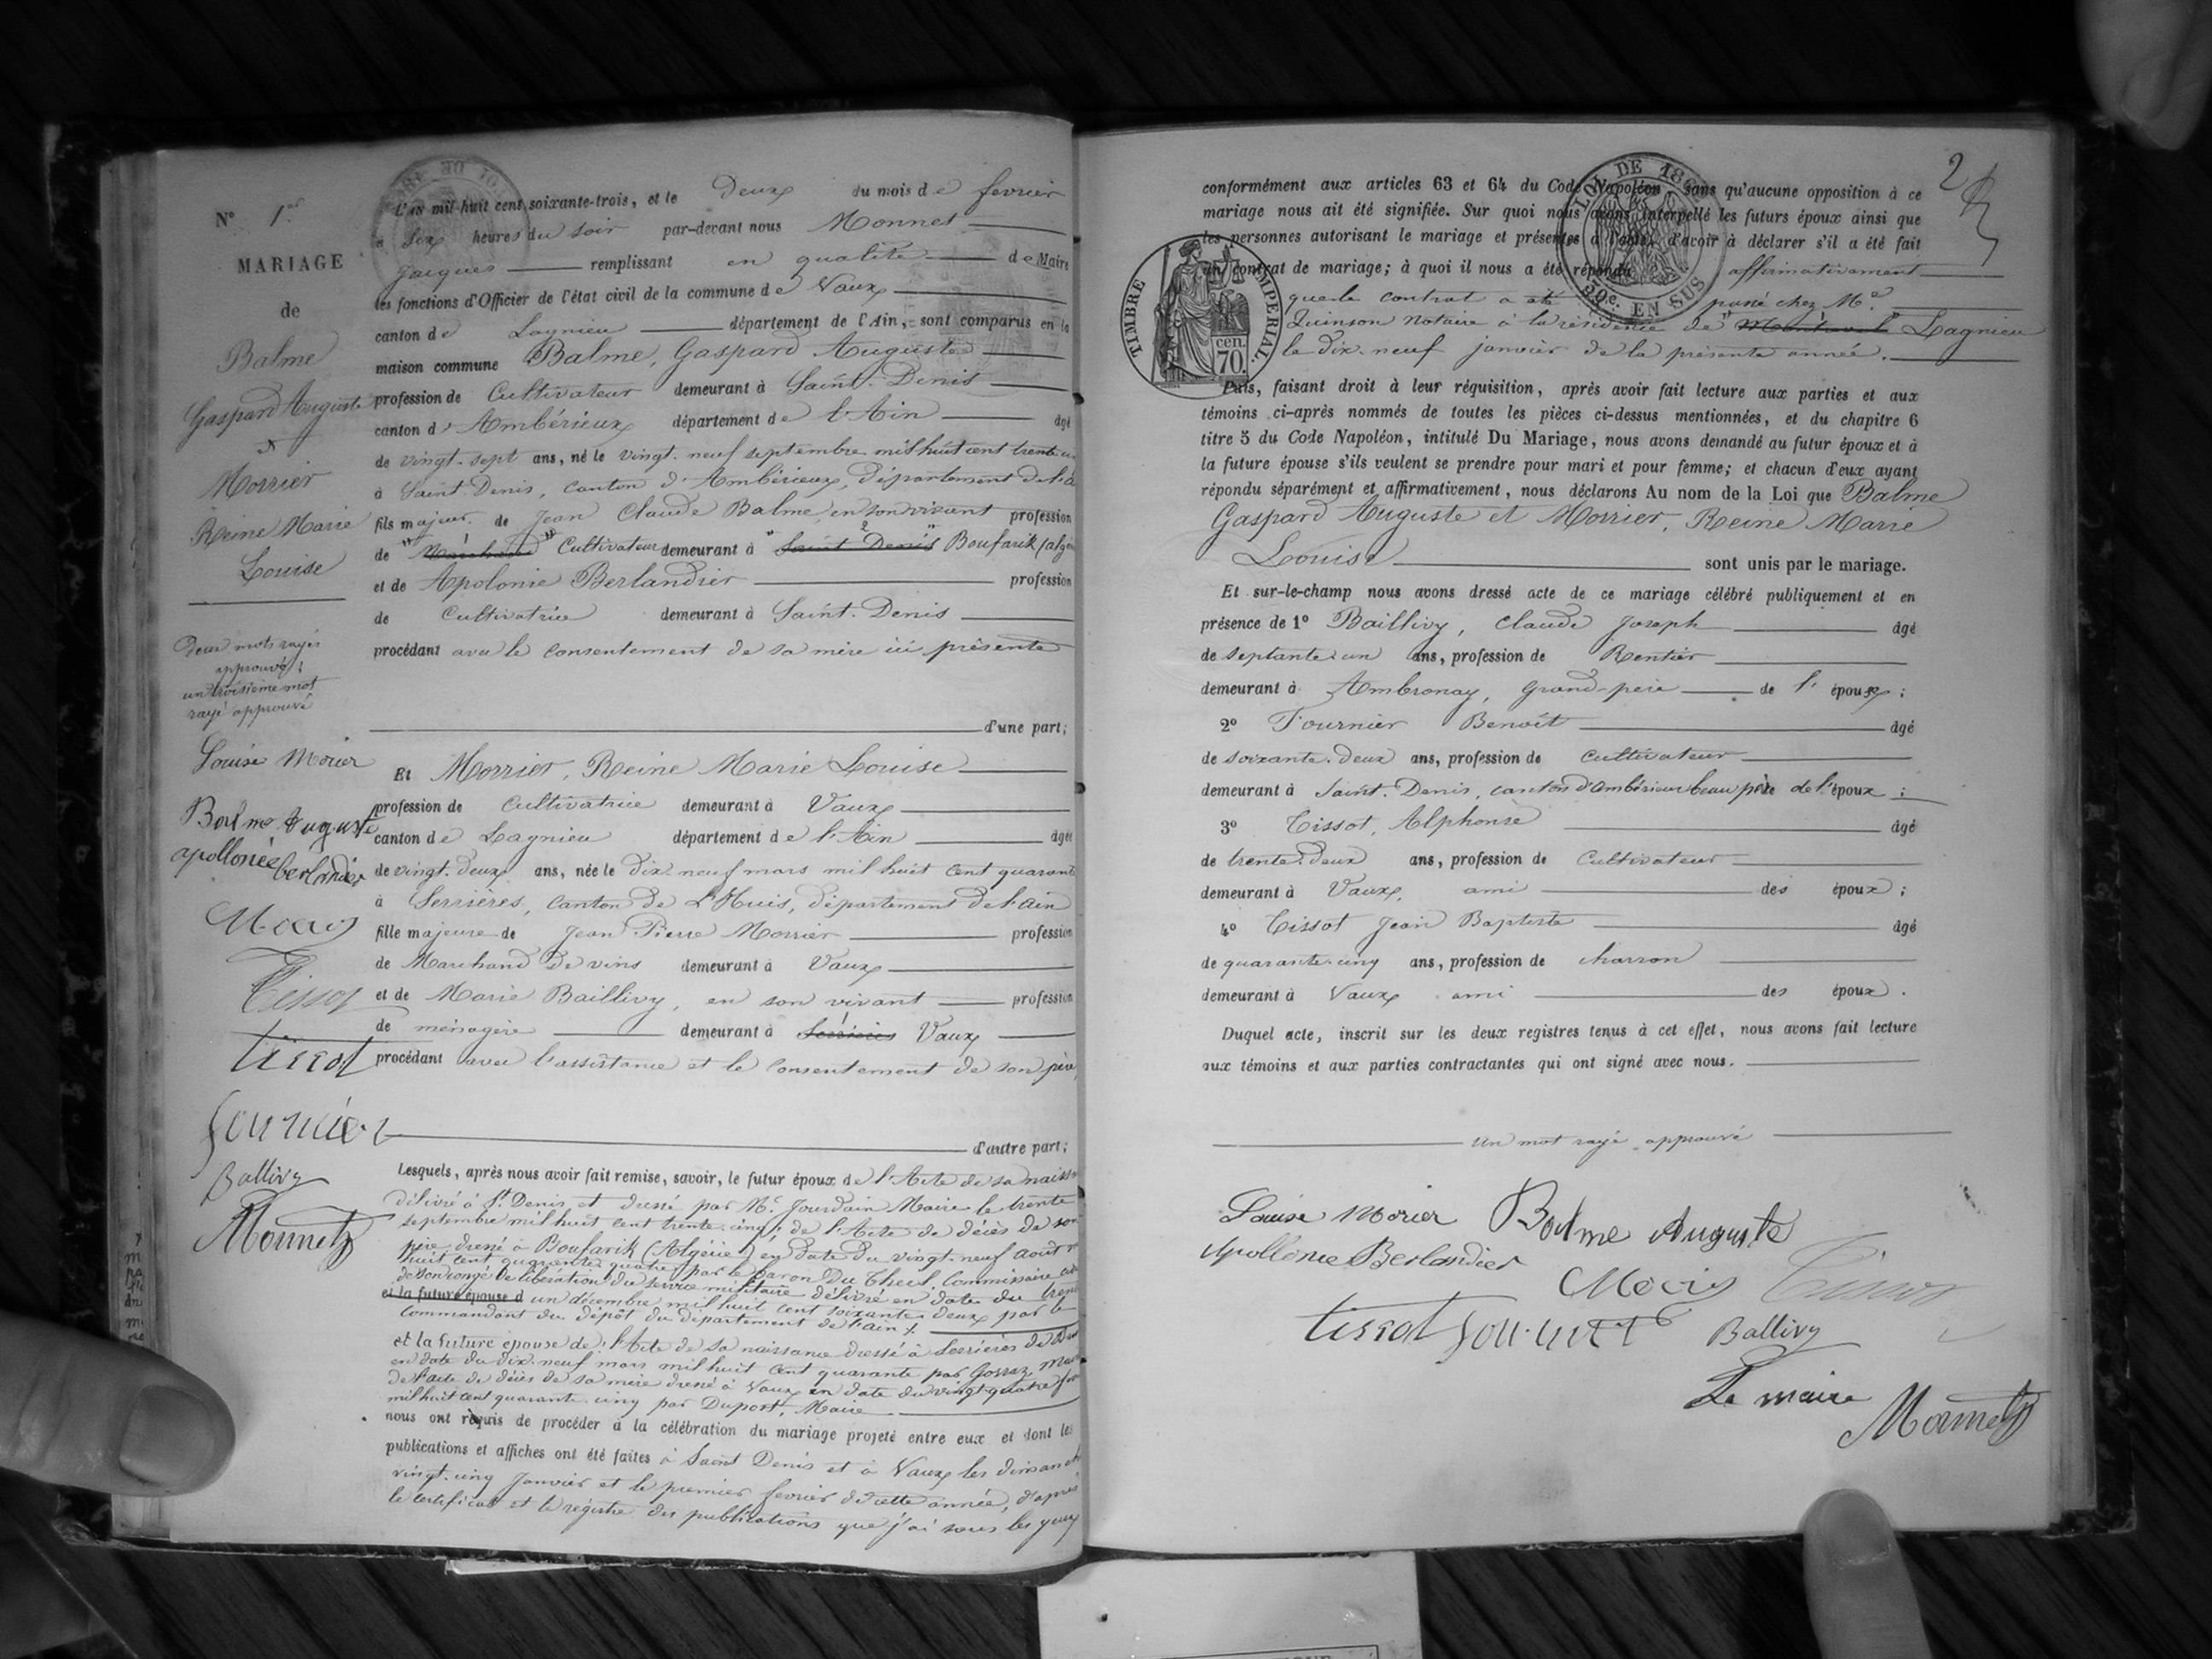 N° 1er
MARIAGE
de
Balme
Gaspard Auguste
&
Morrier
Reine Marie
Louise
Deux mots rayés
approuvés ;
un troisième mot
rayé approuvé
Louise Morier
Balme Auguste
apollonie
berlandier
Tissot
tissot
fournier
Ballivy
Monnet
L'an mil-huit cent soixante-trois, et le Deux du mois de fevrier
à Six heures du soir par-devant nous Monnet
Jacques remplissant en qualité de Maire
les fonctions d'Officier de l'état civil de la commune de Vaux
canton de Lagnieu département de l'Ain, sont comparus en la
maison commune Balme, Gaspard Auguste
profession de Cultivateur demeurant à Saint-Denis
canton d'Ambérieux département de l'Ain âgé
de vingt-sept ans, né le vingt-neuf septembre mil huit cent trente
à Saint-Denis, canton d'Ambérieux, département de l'
fils majeur de Jean Claude Balme, en son vivant profession
de Cultivateur demeurant à Saint Denis Boufarik
et de Apolonie Berlandier profession
de Cultivatrice demeurant à Saint-Denis
procédant avec le consentement de sa mère ici présente
d'une part;
Et Morrier, Reine Marie Louise
profession de Cultivatrice demeurant à Vaux
canton de Lagnieu département de l'Ain âgée
de vingt-deux ans, née le Dix-neuf mars mil huit cent quarante
à Serrières, canton de L'Huis, département de l'ain
fille majeure de Jean Pierre Morrier profession
de Marchand de vins demeurant à Vaux
et de Marie Baillivy, en son vivant profession
de ménagère demeurant à Serrières Vaux
procédant avec l'assistance et le consentement de son père
d'autre part;
Lesquels, après nous avoir fait remise, savoir, le futur époux de l'Acte de sa
délivré à St. Denis et dressé par Mr. Jourdain Maire le trente
septembre mil huit cent trente-cinq ; de l'Acte de décès de son
père dressé à Boufarik (Algérie) en date du vingt-neuf août
huit cent quarante quatre par le baron Du Theil, Commissaire
de son congé de libération du service militaire délivré en date du
et la future épouse d un décembre mil huit cent soixante-deux par le
Commandant du dépôt du département de l'ain
et la future épouse de l'Acte de sa naissance dressé à Serrières
en date du dix-neuf mars mil huit cent quarante par
de l'acte de décès de sa mère dressé à Vaux en date du vingt-quatre
mil huit cent quarante-cinq par Duport, Maire
nous ont requis de procéder à la célébration du mariage projeté entre eux et dont les
publications et affiches ont été faites à Saint Denis et à Vaux les dimanches
vingt-cinq Janvier et le premier fevrier de cette année, d'après
le certificat et le registre des publications que j'ai sous les yeux
2
LOI DE
50c. EN SUS
TIMBRE IMPERIAL
cen.
70.
conformément aux articles 63 et 64 du Code Napoléon, sans qu'aucune opposition à ce
mariage nous ait été signifiée. Sur quoi nous avons interpellé les futurs époux ainsi que
les personnes autorisant le mariage et présentes à l'acte, d'avoir à déclarer s'il a été fait
un contrat de mariage; à quoi il nous a été répondu affirmativement
que le contrat a été passé chez Me.
Quinson Notaire à la résidence de Lagnieu
le dix-neuf janvier de la présente année.
Puis, faisant droit à leur réquisition, après avoir fait lecture aux parties et aux
témoins ci-après nommés de toutes les pièces ci-dessus mentionnées, et du chapitre 6
titre 5 du Code Napoléon, intitulé Du Mariage, nous avons demandé au futur époux et à
la future épouse s'ils veulent se prendre pour mari et pour femme; et chacun d'eux ayant
répondu séparément et affirmativement, nous déclarons Au nom de la Loi que Balme
Gaspard Auguste et Morrier, Reine Marie
Louise sont unis par le mariage.
Et sur-le-champ nous avons dressé acte de ce mariage célébré publiquement et en
présence de 1° Baillivy, Claude Joseph âgé
de septante-un ans, profession de Rentier
demeurant à Ambronay, grand-père de l'épouse ;
2° Fournier Benoît âgé
de soixante-deux ans, profession de cultivateur
demeurant à Saint-Denis, canton d'ambérieux beau père de l'époux ;
3° Tissot, Alphonse âgé
de trente-deux ans, profession de Cultivateur
demeurant à Vaux, ami des époux ;
4° Tissot Jean Baptiste âgé
de quarante-cinq ans, profession de charron
demeurant à Vaux ami des époux.
Duquel acte, inscrit sur les deux registres tenus à cet effet, nous avons fait lecture
aux témoins et aux parties contractantes qui ont signé avec nous.
Un mot rayé approuvé
Louise Morier Balme Auguste
Apollonie Berlandier
Tissot
tissot fournier Ballivy
Le maire
Monnet